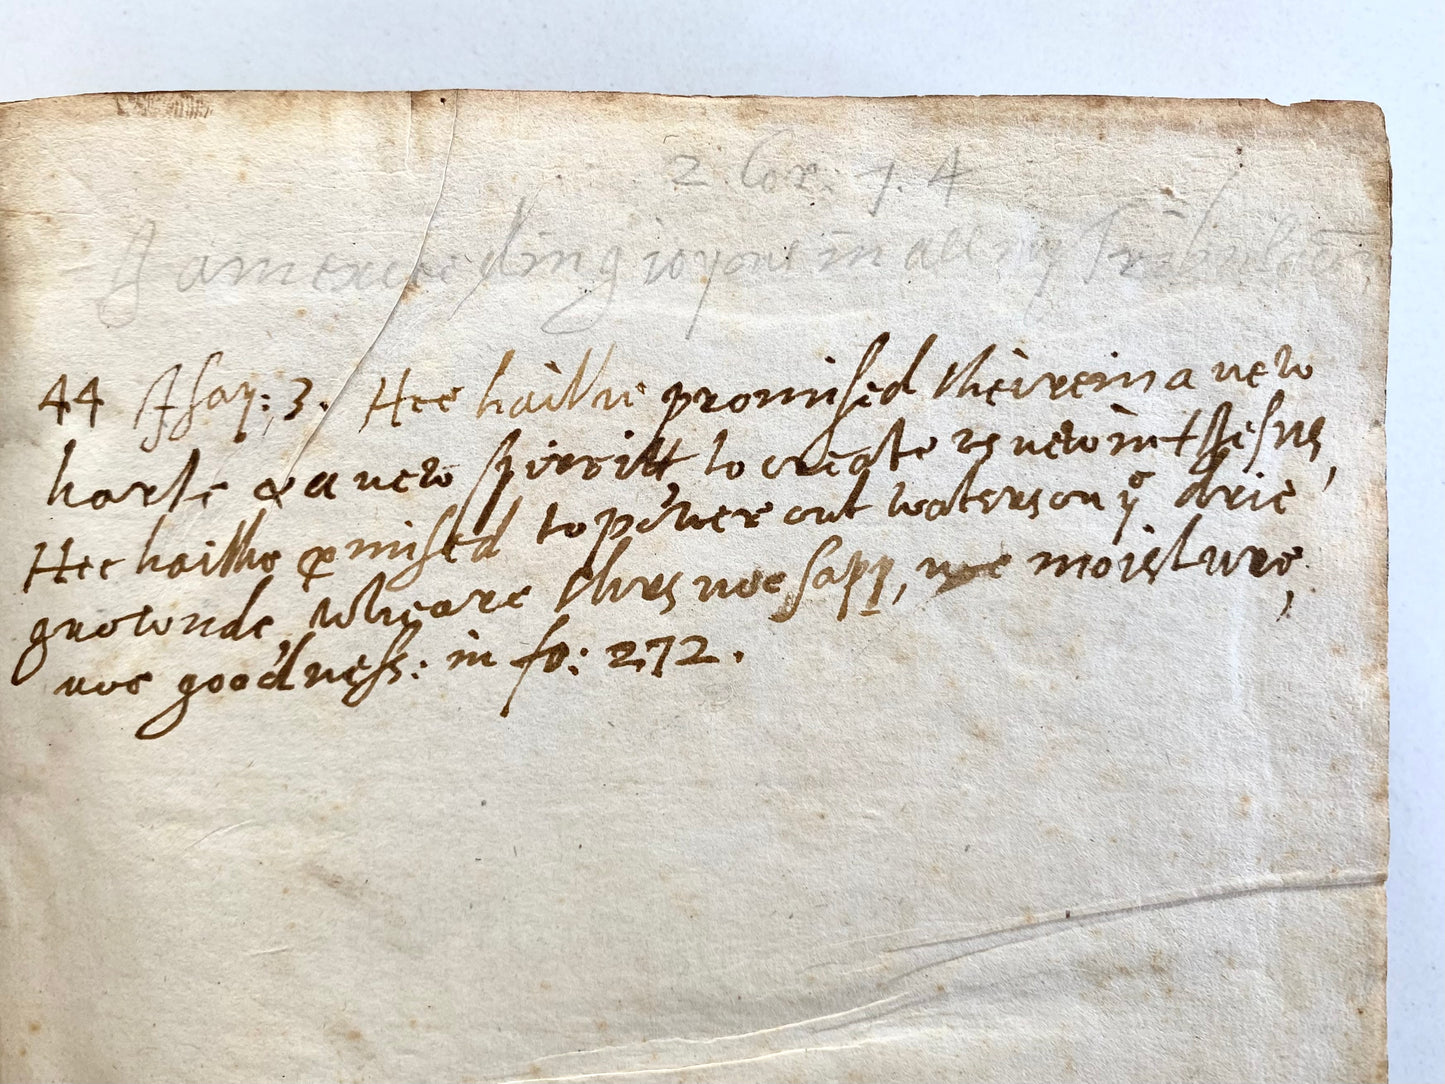 2. Cor: 7. 4
I am exceeding ioyous in all my Tribulation,
44 Isay: 3. Hee haithe promised theirein a new
harte & a new spirritt, to create us new in + Jesus,
Hee haithe ꝑmised to power out waters on yͤ drie
growunde, wheare thrs noe sapp, noe moisture,
noe goodness: in fo: 272.